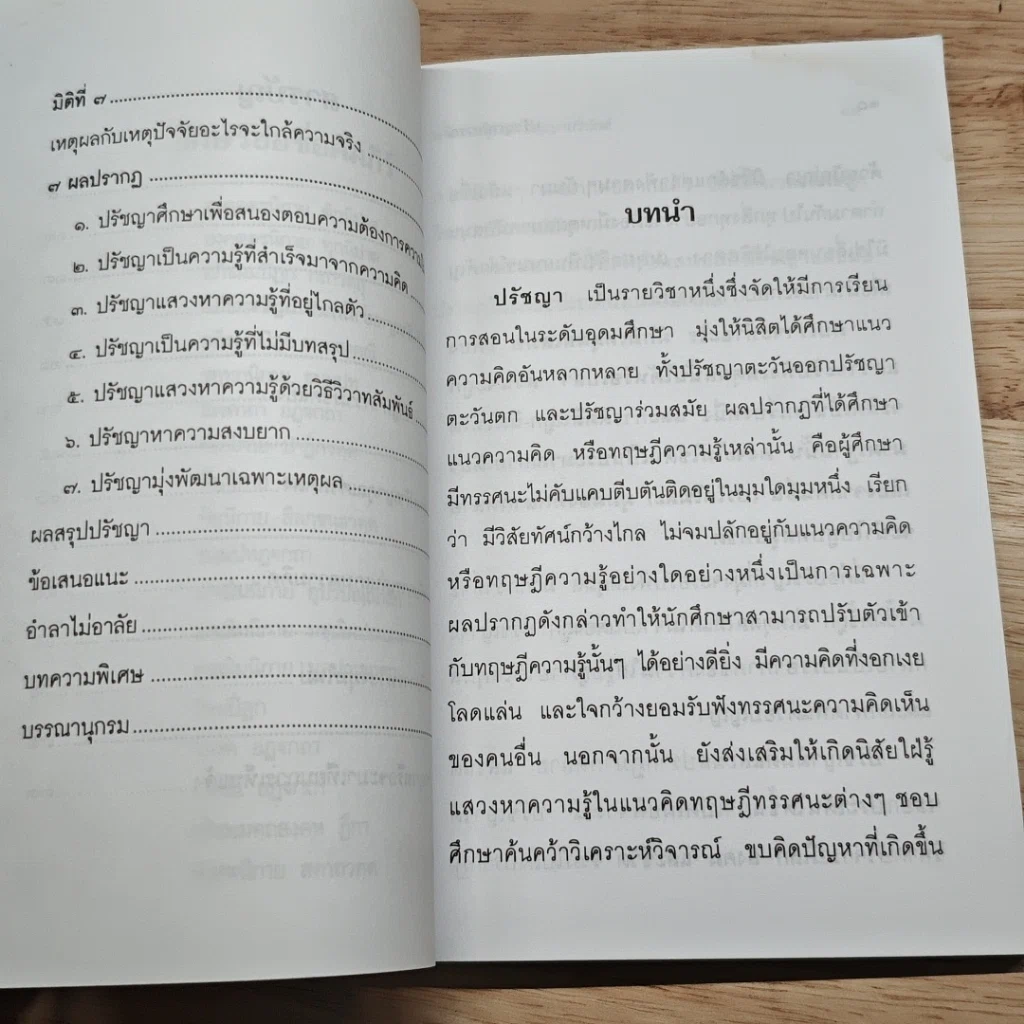 มิติที่ ๗
เหตุผลกับเหตุปัจจัยอะไรจะใกล้ความจริง
๗ ผลปรากฏ
๑. ปรัชญาศึกษาเพื่อสนองตอบความต้องการ
๒. ปรัชญาเป็นความรู้ที่สำเร็จมาจากความคิด
๓. ปรัชญาแสวงหาความรู้ที่อยู่ไกลตัว
๔. ปรัชญาเป็นความรู้ที่ไม่มีบทสรุป
๕. ปรัชญาแสวงหาความรู้ด้วยวิธีวิวาทสัมพันธ์
๖. ปรัชญาหาความสงบยาก
๗. ปรัชญามุ่งพัฒนาเฉพาะเหตุผล
ผลสรุปปรัชญา
ข้อเสนอแนะ
อำลาไม่อาลัย
บทความพิเศษ
บรรณานุกรม
บทนำ
ปรัชญา เป็นรายวิชาหนึ่งซึ่งจัดให้มีการเรียน
การสอนในระดับอุดมศึกษา มุ่งให้นิสิตได้ศึกษาแนว
ความคิดอันหลากหลาย ทั้งปรัชญาตะวันออกปรัชญา
ตะวันตก และปรัชญาร่วมสมัย ผลปรากฏที่ได้ศึกษา
แนวความคิด หรือทฤษฎีความรู้เหล่านั้น คือผู้ศึกษา
มีทรรศนะไม่คับแคบตีบตันติดอยู่ในมุมใดมุมหนึ่ง เรียก
ว่า มีวิสัยทัศน์กว้างไกล ไม่จมปลักอยู่กับแนวความคิด
หรือทฤษฎีความรู้อย่างใดอย่างหนึ่งเป็นการเฉพาะ
ผลปรากฏดังกล่าวทำให้นักศึกษาสามารถปรับตัวเข้า
กับทฤษฎีความรู้นั้นๆ ได้อย่างดียิ่ง มีความคิดที่งอกเงย
โลดแล่น และใจกว้างยอมรับฟังทรรศนะความคิดเห็น
ของคนอื่น นอกจากนั้น ยังส่งเสริมให้เกิดนิสัยใฝ่รู้
แสวงหาความรู้ในแนวคิดทฤษฎีทรรศนะต่างๆ ชอบ
ศึกษาค้นคว้าวิเคราะห์วิจารณ์ ขบคิดปัญหาที่เกิดขึ้น